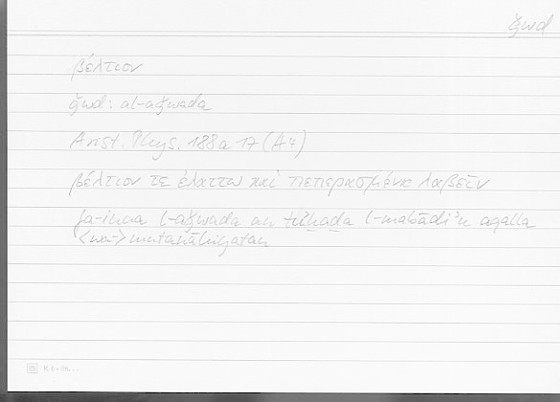 ǧwd
βέλτιον
ǧwd: al-aǧwada
Arist. Phys. 188a 17 (A4)
βέλτιον τε ἐλάττω καὶ πεπερασμένα λαβεῖν
fa-inna l-aǧwada an tuʾḫaḏa l-mabādiʾu aqalla
<wa-> mutanāhiyatan